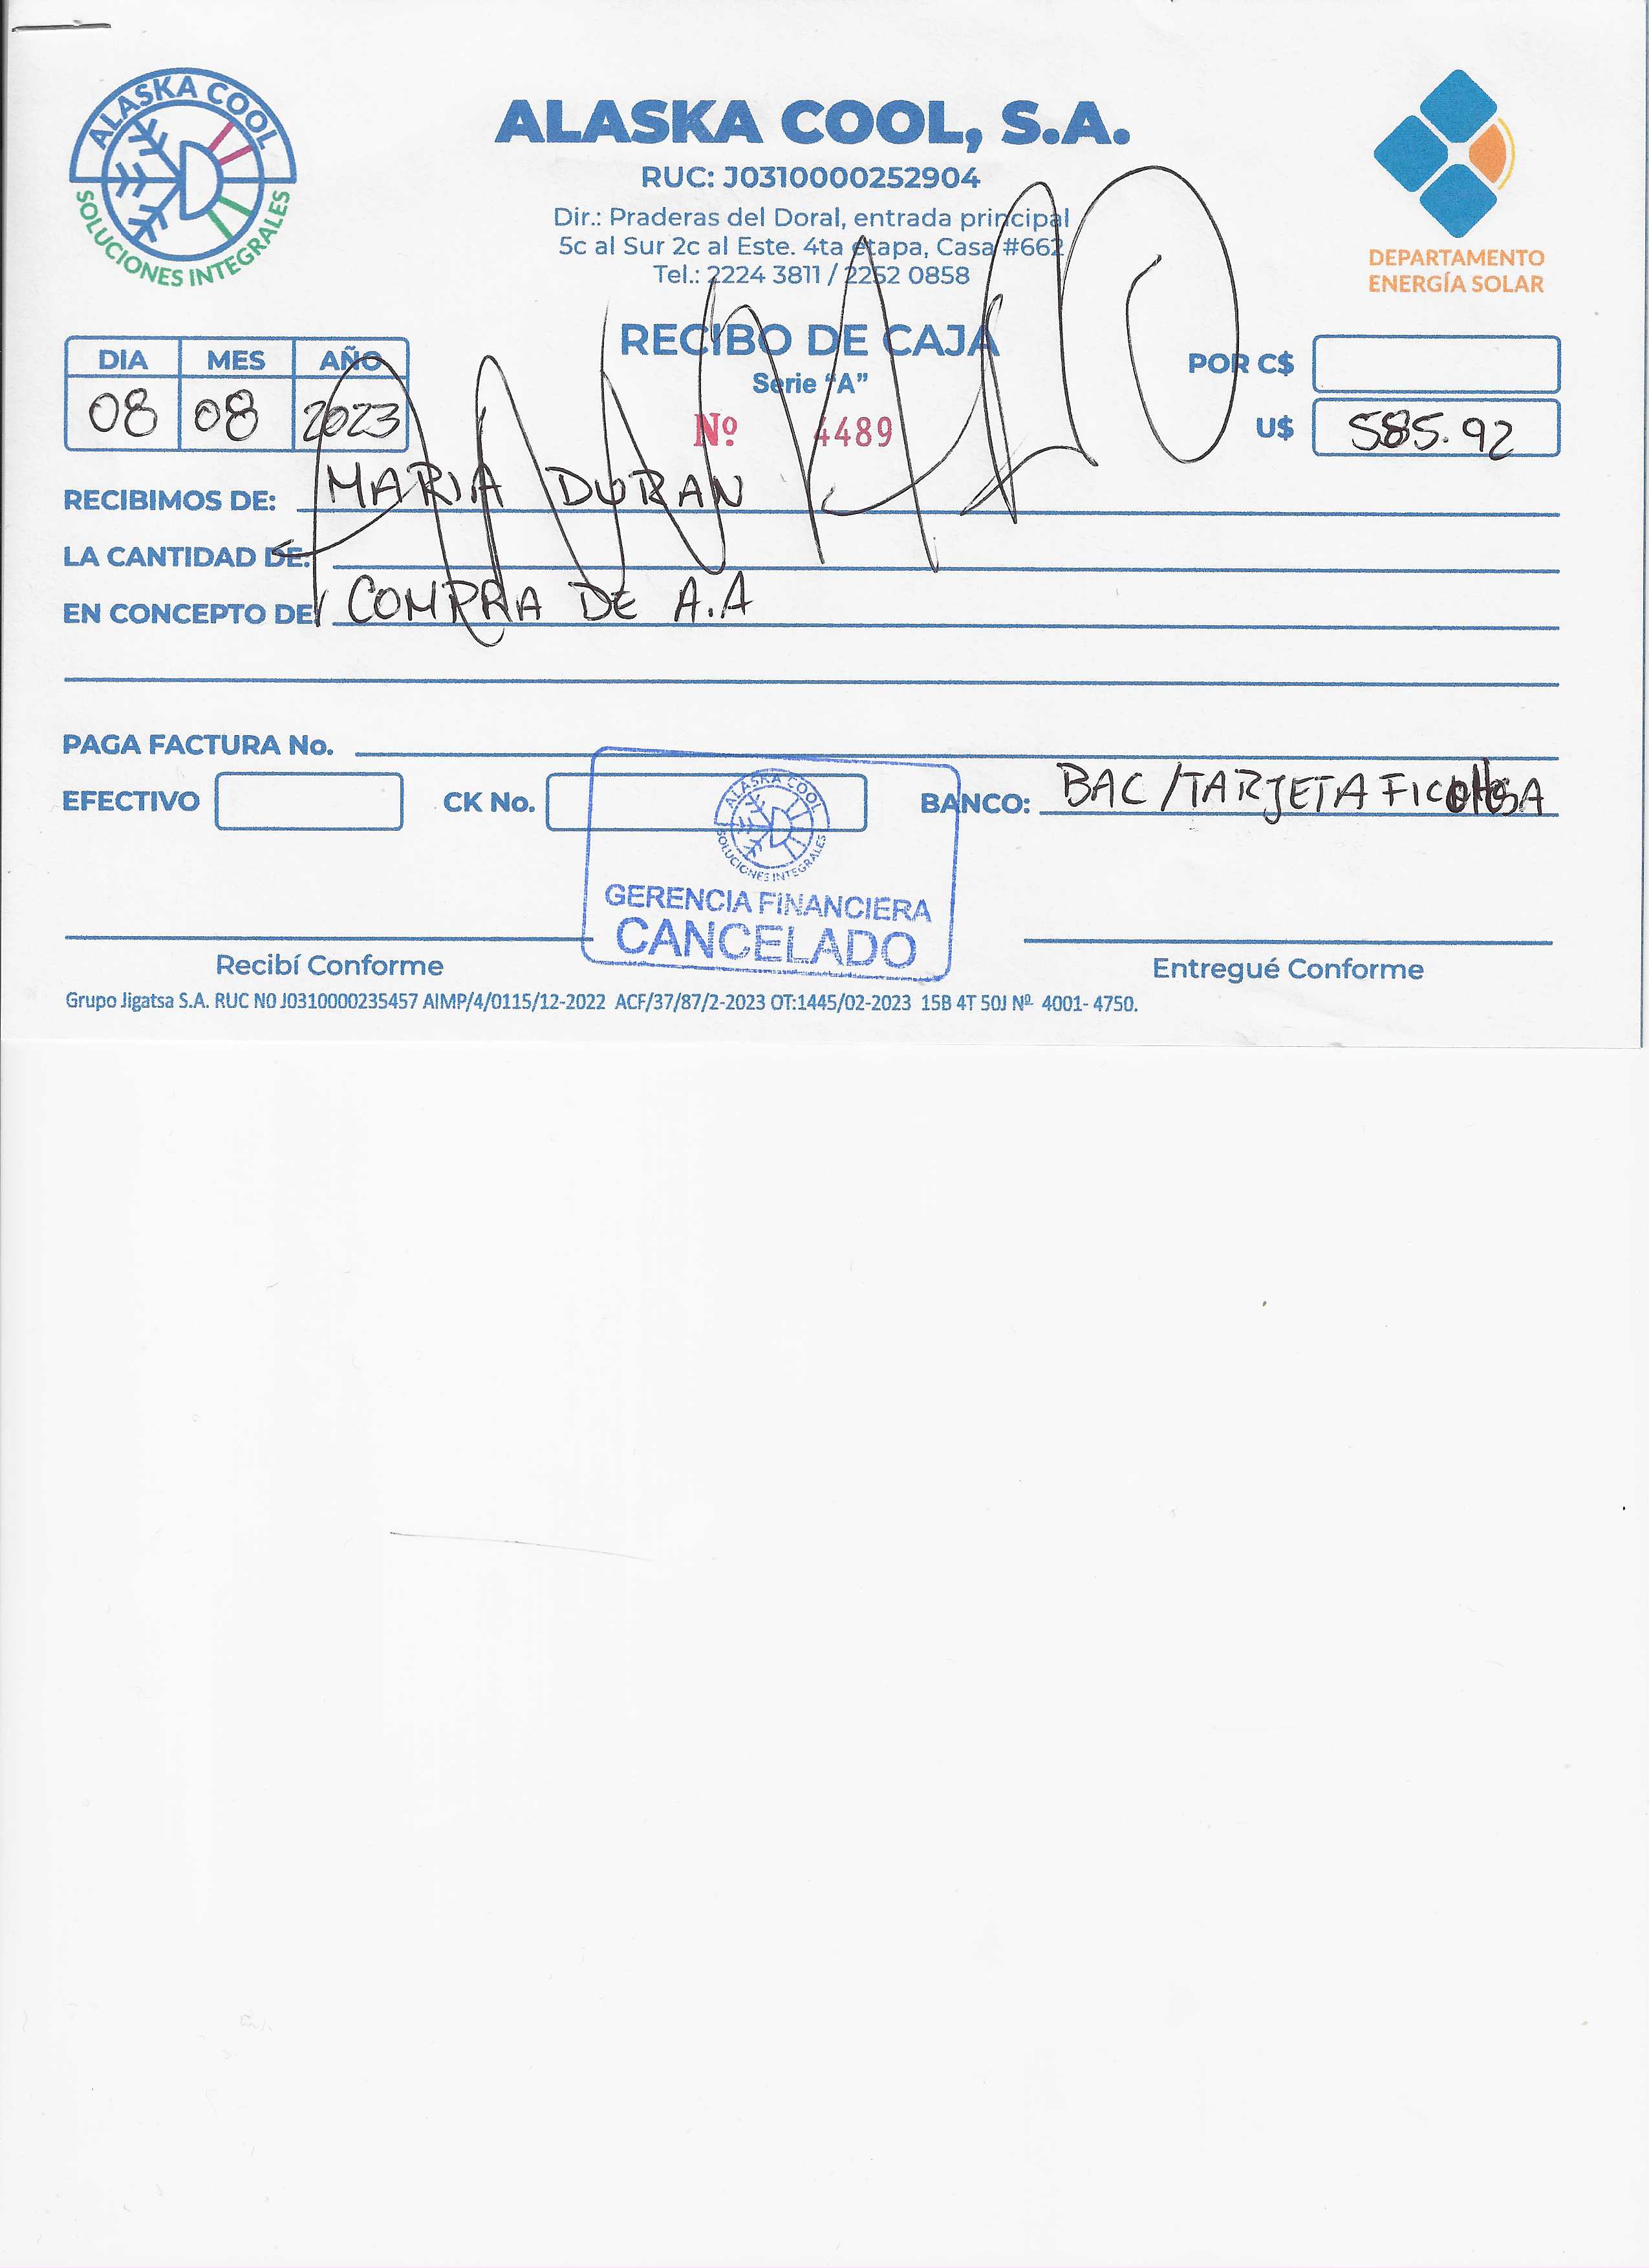 ALASKA COOL
SOLUCIONES INTEGRALES
ALASKA COOL, S.A.
RUC: J0310000252904
Dir.: Praderas del Doral, entrada principal
5c al Sur 2c al Este. 4ta etapa, Casa #662
Tel.: 2224 3811 / 2252 0858
DEPARTAMENTO
ENERGÍA SOLAR
RECIBO DE CAJA
Serie “A”
Nº 4489
DIA MES AÑO
08 08 2023
POR C$
U$ 585.92
ANULADO
RECIBIMOS DE: MARIA DURAN
LA CANTIDAD DE:
EN CONCEPTO DE: COMPRA DE A.A
PAGA FACTURA No.
EFECTIVO CK No. BANCO: BAC /TARJETA FICOHSA
ALASKA COOL
SOLUCIONES INTEGRALES
GERENCIA FINANCIERA
CANCELADO
Recibí Conforme Entregué Conforme
Grupo Jigatsa S.A. RUC N0 J0310000235457 AIMP/4/0115/12-2022 ACF/37/87/2-2023 OT:1445/02-2023 15B 4T 50J Nº 4001- 4750.